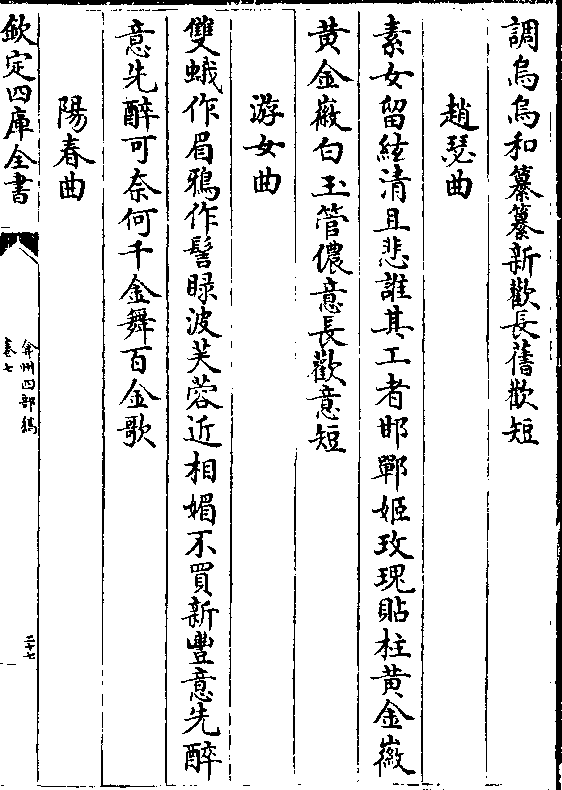 調烏烏和纂纂新歡長舊歡短
趙瑟曲
素女留絃清且悲誰其工者邯鄲姬玫瑰貼柱黄金徽
黄金徽白玉管儂意長歡意短
游女曲
雙蛾作眉鴉作髻睩波芙蓉近相媚不買新豐意先醉
意先醉可奈何千金舞百金歌
陽春曲
欽定四庫全書
弇州四部稿
卷七
二十七